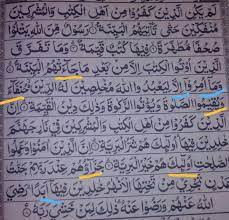 لَمْ يَكُنِ الَّذِيْنَ كَفَرُوْا مِنْ اَهْلِ الْكِتٰبِ وَالْمُشْرِكِيْنَ
مُنْفَكِّيْنَ حَتّٰى تَاْتِيَهُمُ الْبَيِّنَةُ ۙ رَسُوْلٌ مِّنَ اللّٰهِ يَتْلُوْا
صُحُفًا مُّطَهَّرَةً ۙ فِيْهَا كُتُبٌ قَيِّمَةٌ ؕ وَمَا تَفَرَّقَ
الَّذِيْنَ اُوْتُوا الْكِتٰبَ اِلَّا مِنْۢ بَعْدِ مَا جَآءَتْهُمُ الْبَيِّنَةُ ؕ
وَمَاۤ اُمِرُوْۤا اِلَّا لِيَعْبُدُوا اللّٰهَ مُخْلِصِيْنَ لَهُ الدِّيْنَ حُنَفَآءَ
وَيُقِيْمُوا الصَّلٰوةَ وَيُؤْتُوا الزَّكٰوةَ وَذٰلِكَ دِيْنُ الْقَيِّمَةِ ؕ اِنَّ
الَّذِيْنَ كَفَرُوْا مِنْ اَهْلِ الْكِتٰبِ وَالْمُشْرِكِيْنَ فِيْ نَارِ جَهَنَّمَ
خٰلِدِيْنَ فِيْهَا ؕ اُولٰٓئِكَ هُمْ شَرُّ الْبَرِيَّةِ ؕ اِنَّ الَّذِيْنَ اٰمَنُوْا وَعَمِلُوا
الصّٰلِحٰتِ ۙ اُولٰٓئِكَ هُمْ خَيْرُ الْبَرِيَّةِ ؕ جَزَآؤُهُمْ عِنْدَ رَبِّهِمْ جَنّٰتُ
عَدْنٍ تَجْرِيْ مِنْ تَحْتِهَا الْاَنْهٰرُ خٰلِدِيْنَ فِيْهَاۤ اَبَدًا ؕ رَضِيَ
اللّٰهُ عَنْهُمْ وَرَضُوْا عَنْهُ ؕ ذٰلِكَ لِمَنْ خَشِيَ رَبَّهٗ